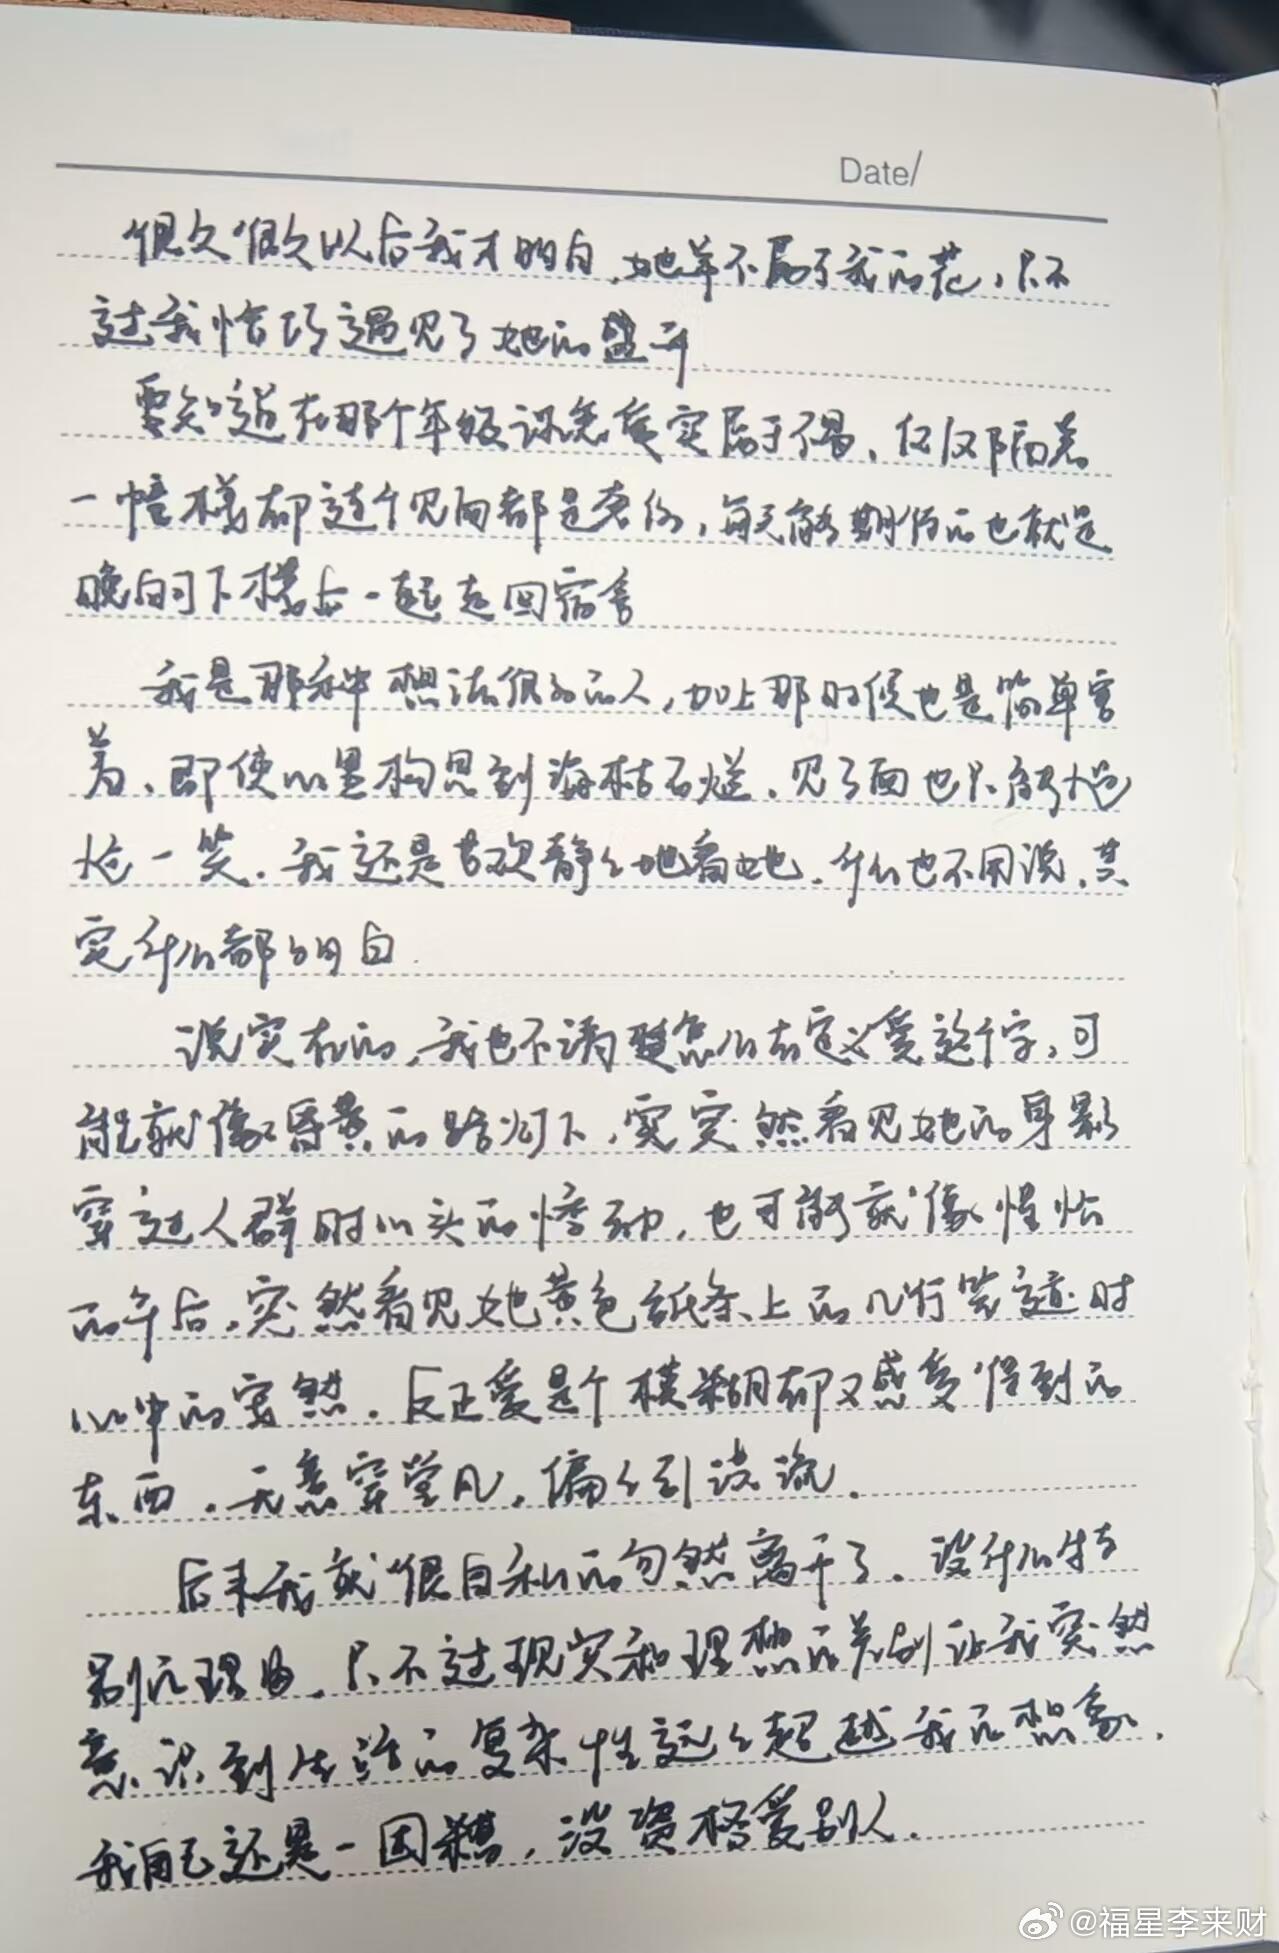 Date/
很久很久以后我才明白,她并不属于我的花,只不
过我恰巧遇见了她的盛开
要知道在那个年级谈恋爱实属于偶,仅仅隔着
一幢楼却这个见面都是奢侈,每天能期待的也就是
晚自习下楼后一起走回宿舍
我是那种想法很多的人,加上那时候也是简单害
羞、即使心里构思到海枯石烂、见了面也只能尴
尬一笑.我还是喜欢静々地看她.什么也不用说,其
实什么都明白.
说实在的,我也不清楚怎么去定义爱这个字,可
能就像昏黄的路灯下,突突然看见她的身影
穿过人群时心头的悸动,也可能就像惺忪
的午后,突然看见她黄色纸条上的几行笔迹时
心中的突然.反正爱是个模糊却又感受得到的
东西.无意穿堂风,偏々引洪流.
后来我就很自私的匆然离开了.没什么特
别的理由,只不过现实和理想的差别让我突然
意识到生活的复杂性远々超越我的想象.
我自己还是一团糟,没资格爱别人.
@福星李来财